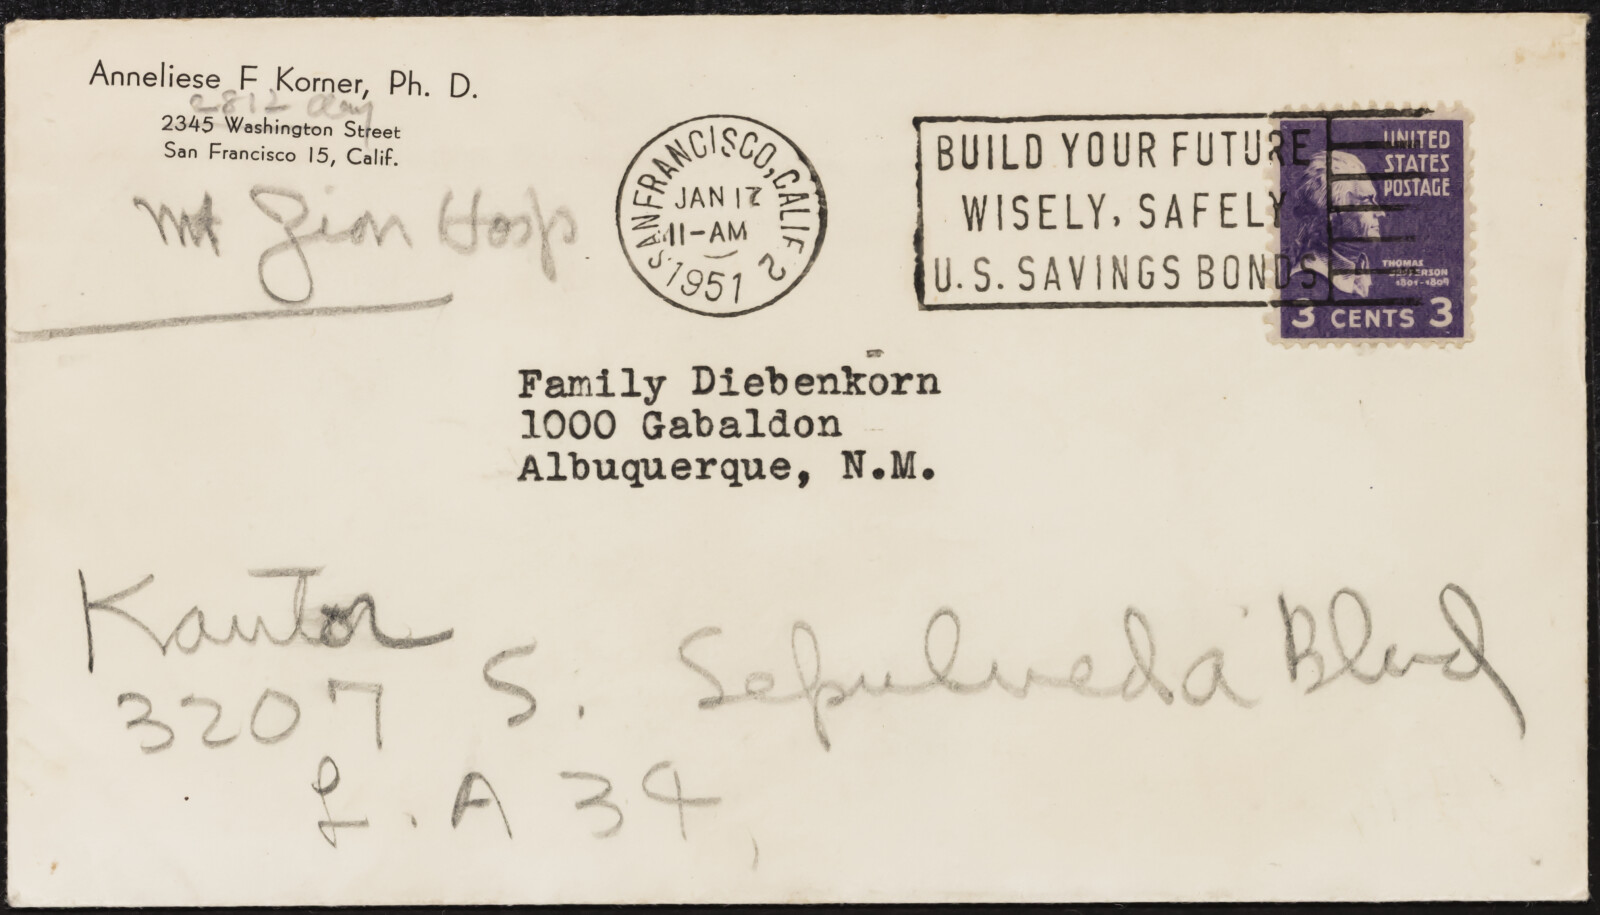 Anneliese F Korner, Ph. D.
2812 Clay
2345 Washington Street
San Francisco 15, Calif.
Mt Zion Hosp
SAN FRANCISCO, CALIF 2
JAN 17
11-AM
1951
BUILD YOUR FUTURE
WISELY, SAFELY
U.S. SAVINGS BONDS
UNITED
STATES
POSTAGE
THOMAS
JEFFERSON
1801-1809
3 CENTS 3
Family Diebenkorn
1000 Gabaldon
Albuquerque, N.M.
Kantor
3207 S. Sepulveda Blvd
L.A 34,